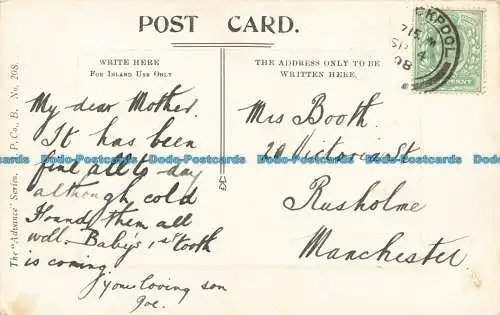 POST CARD.
WRITE HERE
FOR INLAND USE ONLY
THE ADDRESS ONLY TO BE
WRITTEN HERE.
The "Advance" Series. P. Co., B. No. 208.
My dear Mother.
It has been
fine all to day
although cold
Found them all
well. Baby's 1st tooth
is coming.
your loving son
Joe.
Mrs Booth
20 Victoria St
Rusholme
Manchester
CKPOOL
SP 4
08
PENNY
Dodo-Postcards Dodo-Postcards Dodo-Postcards Dodo-Postcards Dodo-Postcards